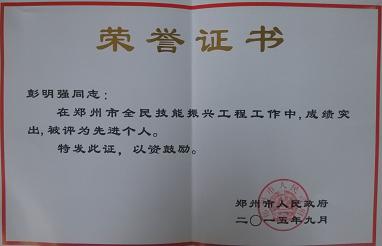 荣誉证书
彭明强同志：
在郑州市全民技能振兴工程工作中,成绩突
出,被评为先进个人。
特发此证，以资鼓励。
郑州市人民政府
二〇一五年九月